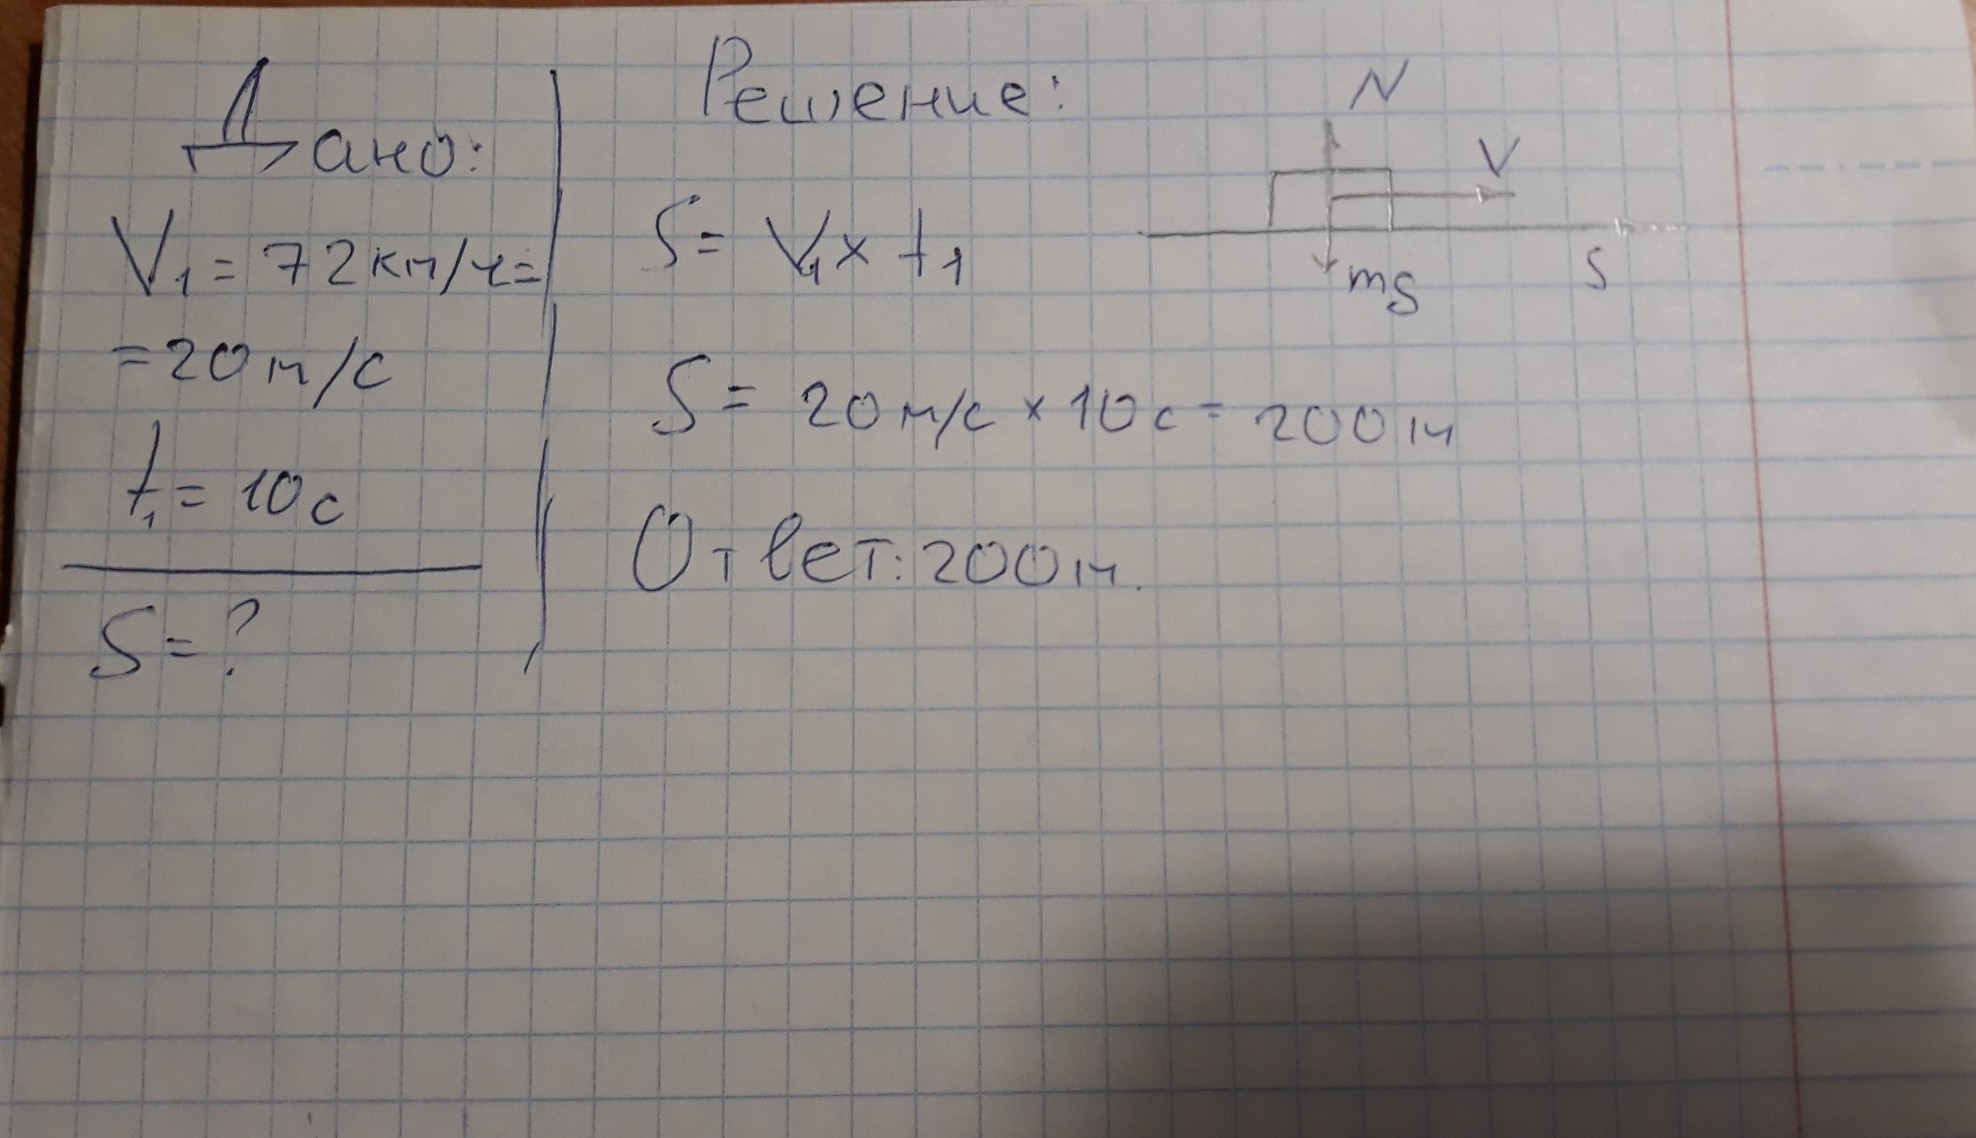 Дано:
V₁ = 72км/ч=
=20м/с
t₁= 10с
S= ?
Решение:
S= V₁ x t₁
S= 20м/с x 10с = 200м
Ответ: 200м.
N
V
mg
S